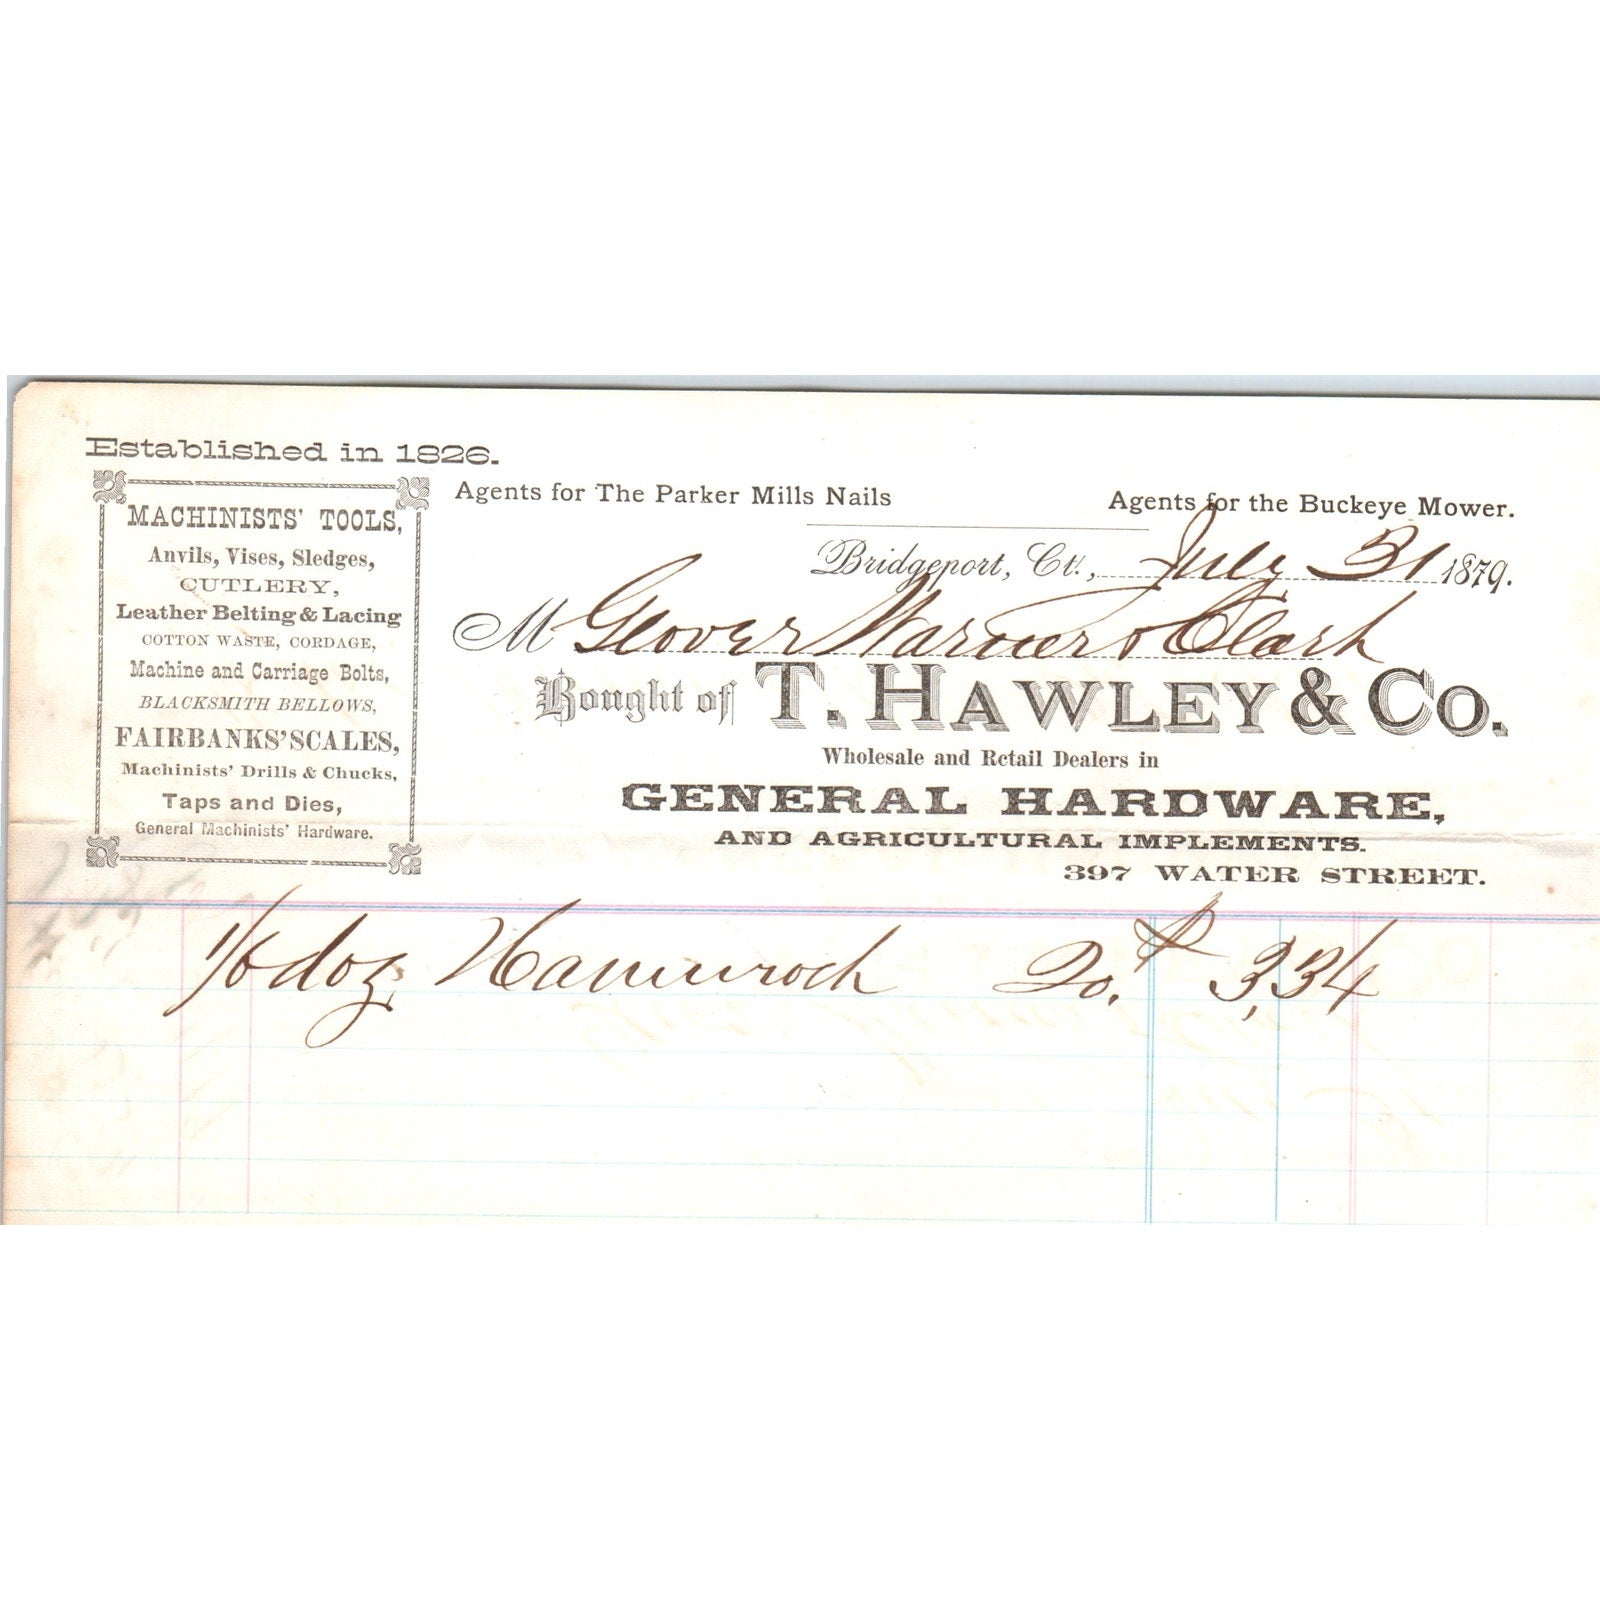 Established in 1826.
MACHINISTS' TOOLS,
Anvils, Vises, Sledges,
CUTLERY,
Leather Belting & Lacing
COTTON WASTE, CORDAGE,
Machine and Carriage Bolts,
BLACKSMITH BELLOWS,
FAIRBANKS' SCALES,
Machinists' Drills & Chucks,
Taps and Dies,
General Machinists' Hardware.
Agents for The Parker Mills Nails
Agents for the Buckeye Mower.
Bridgeport, Ct., July 31 1879.
M Glover Warner & Clark
Bought of T. HAWLEY & CO.
Wholesale and Retail Dealers in
GENERAL HARDWARE,
AND AGRICULTURAL IMPLEMENTS.
397 WATER STREET.
1/6 doz 20. $ 3,34